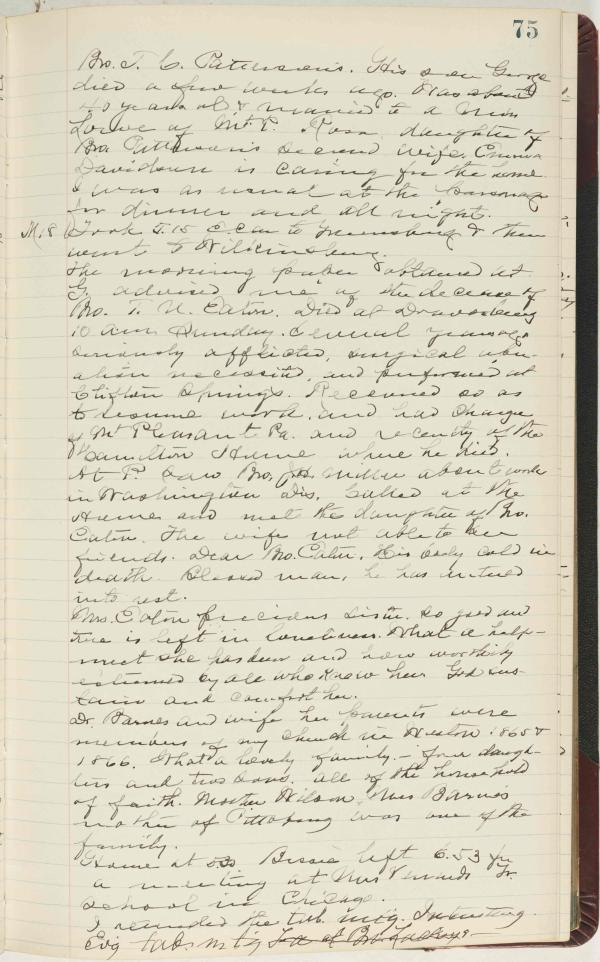 75
Bro. T. C. Patterson's. His son George
died a few weeks ago. Was about
40 years old & married to a Miss
Lowe of Mt. P. Rosa, daughter of
Bro. Patterson's second wife. Emma
Davidson is caring for the home
I was as usual at the parsonage
for dinner and all night.
M. 8 Took 5.15 c car to Greensburg & then
went to Wilkinsburg.
The morning paper obtained at
G. advised me of the decease of
Bro. T. N. Eaton. Died at Dravosburg
10 a.m. Sunday. Several years ago
seriously afflicted, surgical oper-
ation necessitd, and performed at
Clifton Springs. Recovered so as
to resume work, and had charge
of Mt Pleasant Pa. and recently of the
Hamilton Home where he died.
At P. saw Bro. Jas. Miller about work
in Washington Dis. Called at the
Home and met the daughter of Bro.
Eaton. The wife not able to see
friends. Dear Bro. Eaton. His body cold in
death. Blessed man, he has entered
into rest.
Mrs. Eaton precious sister. So good and
true is left in loneliness. What a help-
meet she has been and how worthily
esteemed by all who know her. God sus-
tain and comfort her.
Dr. Barnes and wife her parents were
members of my church in Weston 1865 &
1866. What a lovely family - four daugh-
ters and two sons. All of the household
of faith. Mother Wilson, Mrs Barnes
mother of Pittsburg was one of the
family.
Home at 5.30 Bessie left 6.53 for
a meeting at Mrs Tr.
School in Chicago.
I attended the tab. mt'g. Interesting.
Ev'g tab. mt'g